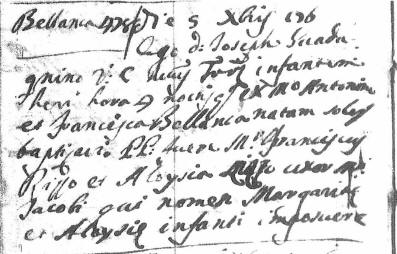 Bellanca die 5 Xbris 176
Ego d: Joseph Guada:
gnino V: C huius infantem
heri hora 9 noctis ex Mo Antonino
et Francisca Bellanca natam
baptizavi PP: fuere Mr Franciscus
Rizzo et Aloysia uxor Mri
Jacobi qui nomen Margarita
et Aloysie infanti imposuere